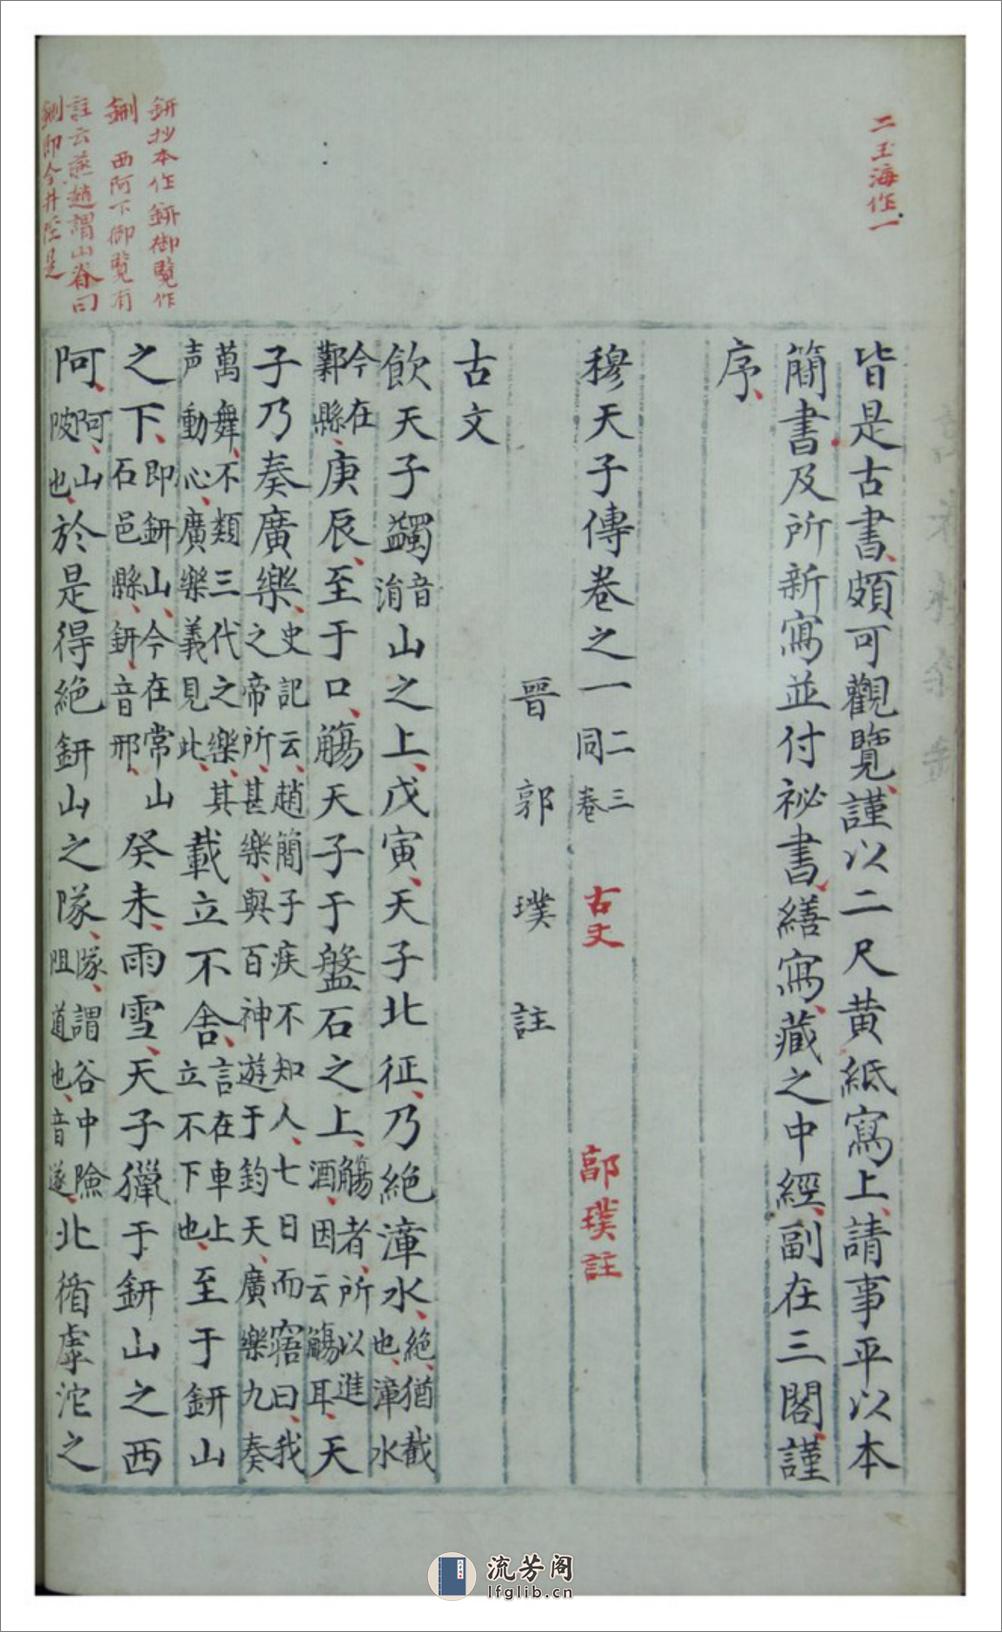 二玉海作一
皆是古書頗可觀覽謹以二尺黄紙寫上請事平以本
簡書及所新寫並付祕書繕寫藏之中經副在三閣謹
序
穆天子傳卷之一二三同卷
古文
郭璞註
晉郭璞註
古文
飲天子蠲音涓山之上戊寅天子北征乃絕漳水絕猶截也漳水
今在鄴縣庚辰至于口觴天子于盤石之上觴者所以進酒因云觴耳天
子乃奏廣樂史記云趙簡子疾不知人七日而寤曰我之帝所甚樂與百神遊于鈞天廣樂九奏
萬舞不類三代之樂其声動心廣樂義見此載立不舍言在車上立不下也至于鈃山
之下即鈃山今在常山石邑縣鈃音邢癸未雨雪天子獵于鈃山之西
阿阿山陂也於是得絕鈃山之隊隊謂谷中險阻道也音遂北循虖沱之
鈃抄本作鈃御覽作
鉶 西阿下御覽有
註云燕趙謂山脊曰
鉶即今井陘是
流芳阁
lfglib.cn